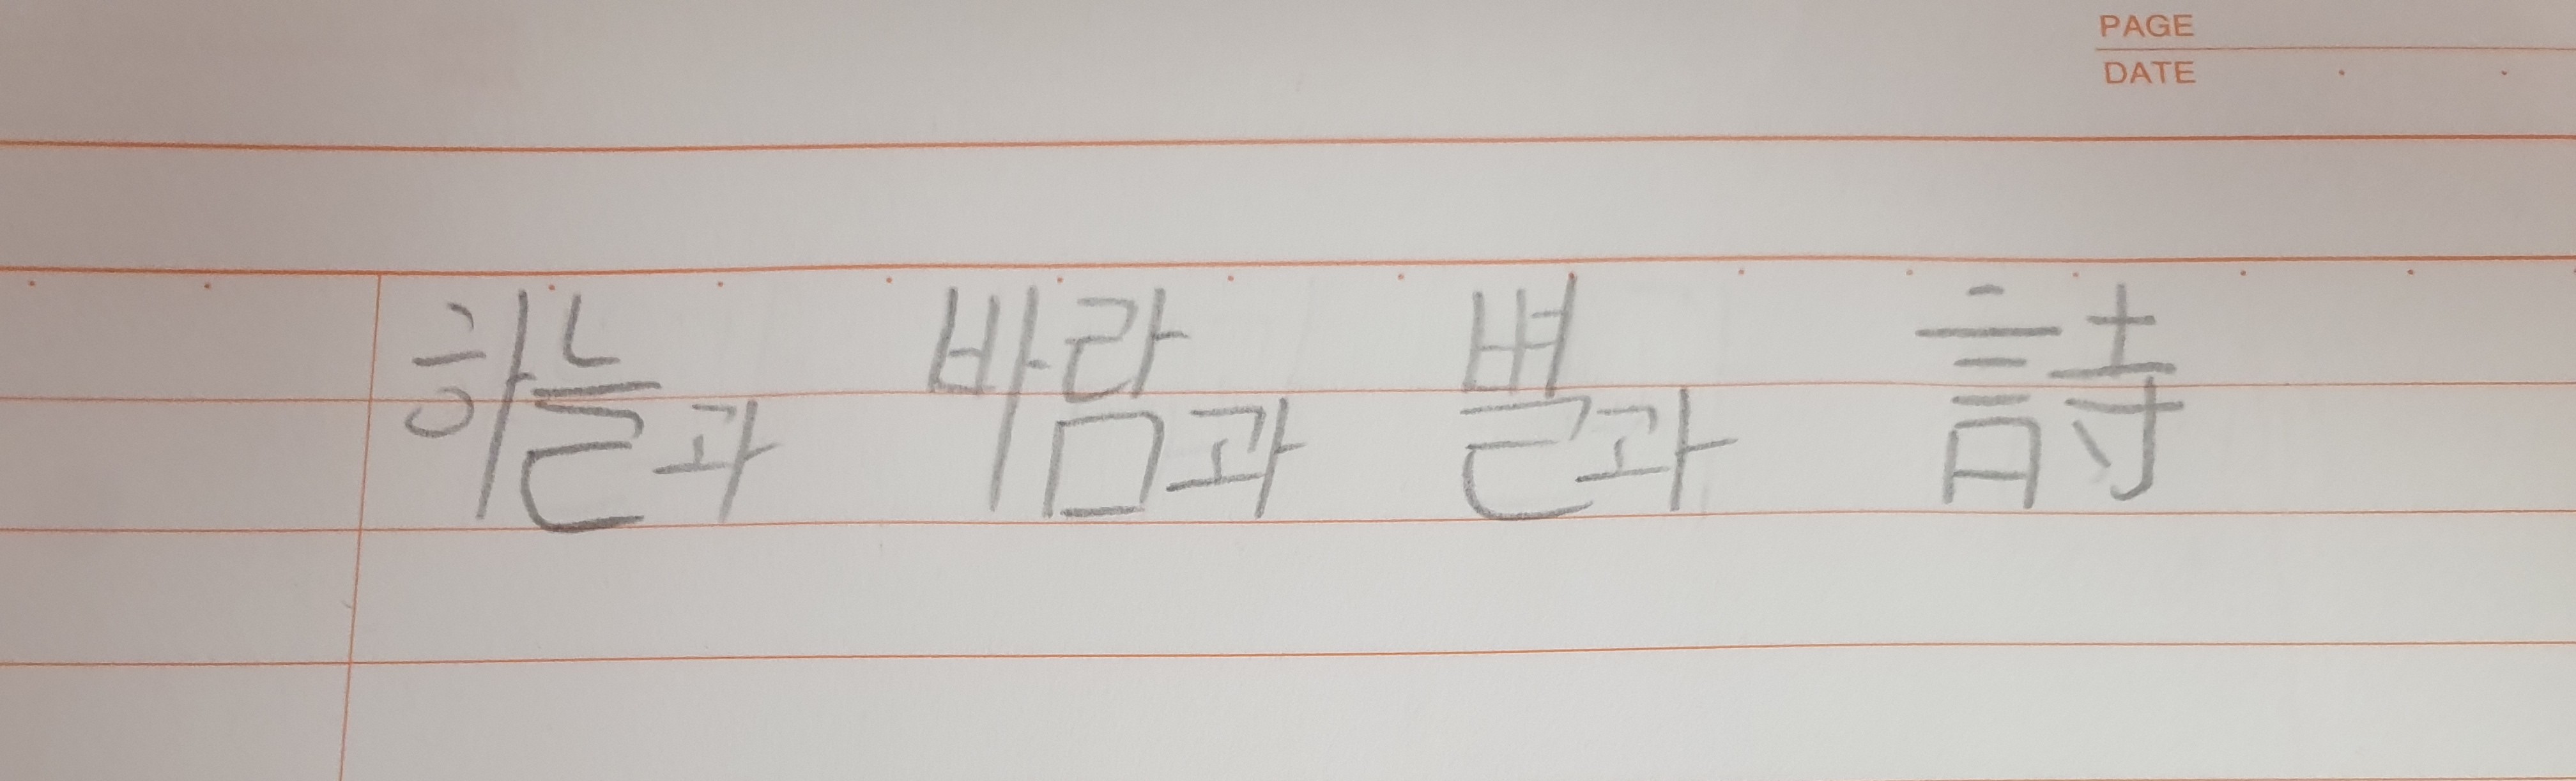 PAGE
DATE
하늘과 바람과 별과 詩